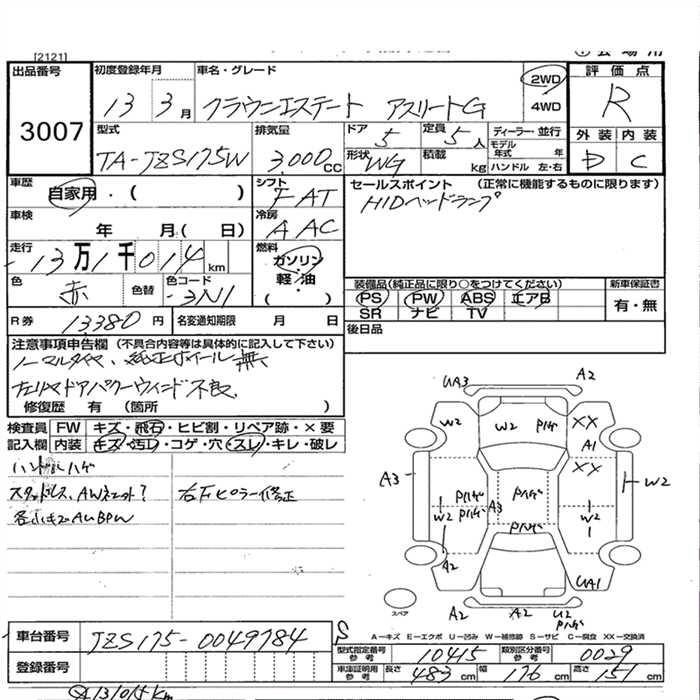 [2121]
出品番号
3007
初度登録年月
13 3月
車名・グレード
クラウンエステート アスリートG
2WD
4WD
評価点
R
外装 内装
D C
型式
TA-JZS175W
排気量
3,000cc
ドア 5
定員 5人
形状 WG
積載 kg
ディーラー・並行
モデル年式 年
ハンドル 左・右
車歴
自家用・( )
シフト
FAT
車検
年 月( 日)
冷房
AAC
走行
13万1千014km
燃料
ガソリン・
軽・油
・
( )
色
赤
色替
色コード
3N1
R券 13,380円
名変通知期限 月 日
セールスポイント (正常に機能するものに限ります)
HIDヘッドランプ
装備品(純正品に限り○をつけてください)
PS PW ABS エアB
SR ナビ TV
新車保証書
有・無
後日品
注意事項申告欄 (不具合内容等は具体的に記入して下さい)
ノーマルタイヤ、純正ホイール無
左リヤドアパワーウィンド不良
修復歴 有 (箇所 )
検査員 FW キズ・飛石・ヒビ割・リペア跡・×要
記入欄 内装 キズ・汚レ・コゲ・穴・スレ・キレ・破レ
ハンドルハゲ
スタッドレス、AW
右左ピラー修正
各小キズAUBPW
UA3 A2
W2 W2 Pハゲ XX
A1
XX
A3 W2
Pハゲ Pハゲ
W2 Pハゲ A3 W2
Pハゲ
A2
UA1
スペア
A2 A2 U2
Pハゲ
A―キズ E―エクボ U―凹み W―補修跡 S―サビ C―腐食 XX―交換済
車台番号
JZS175-0049784
S
型式指定番号
参考
10415
類別区分番号
参考
0029
登録番号
車庫証明用
参考
長さ 483cm 幅 176cm 高さ 151cm
131015km